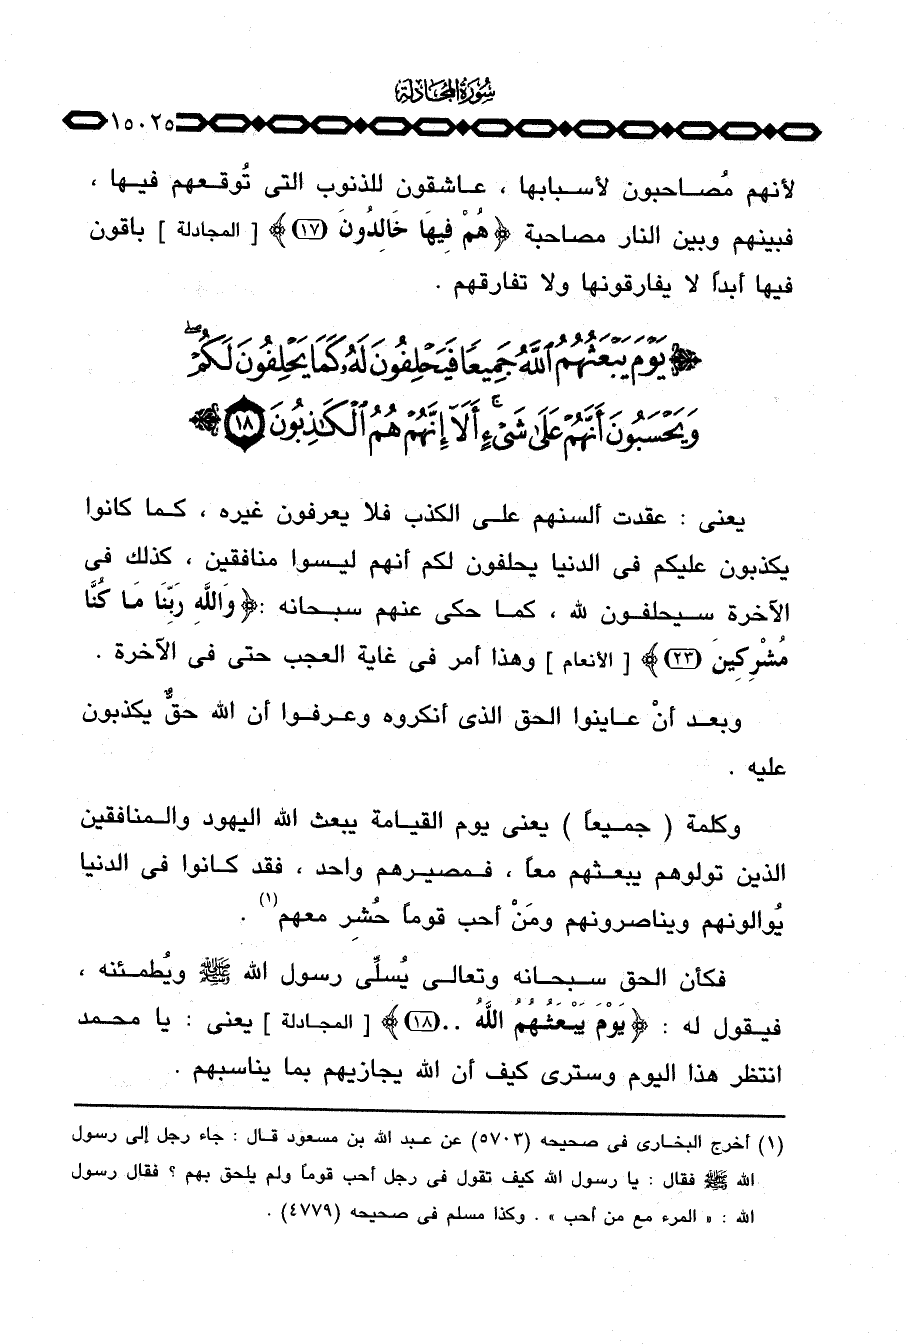 سُورَةُ المُجَادَلَة
١٥٠٢٥
لأنهم مُصاحبون لأسبابها ، عاشقون للذنوب التى تُوقعهم فيها ،
فبينهم وبين النار مصاحبة ﴿ هُمْ فِيهَا خَالِدُونَ (١٧) ﴾ [ المجادلة ] باقون
فيها أبداً لا يفارقونها ولا تفارقهم .
يَوْمَ يَبْعَثُهُمُ ٱللَّهُ جَمِيعًا فَيَحْلِفُونَ لَهُۥ كَمَا يَحْلِفُونَ لَكُمْ ۖ
وَيَحْسَبُونَ أَنَّهُمْ عَلَىٰ شَىْءٍ ۚ أَلَآ إِنَّهُمْ هُمُ ٱلْكَٰذِبُونَ ١٨
يعنى : عقدت ألسنهم على الكذب فلا يعرفون غيره ، كما كانوا
يكذبون عليكم فى الدنيا يحلفون لكم أنهم ليسوا منافقين ، كذلك فى
الآخرة سيحلفون لله ، كما حكى عنهم سبحانه :﴿ وَاللَّهِ رَبِّنَا مَا كُنَّا
مُشْرِكِينَ (٢٣) ﴾ [ الأنعام ] وهذا أمر فى غاية العجب حتى فى الآخرة .
وبعد أنْ عاينوا الحق الذى أنكروه وعرفوا أن الله حقٌّ يكذبون
عليه .
وكلمة ( جميعاً ) يعنى يوم القيامة يبعث الله اليهود والمنافقين
الذين تولوهم يبعثهم معاً ، فمصيرهم واحد ، فقد كانوا فى الدنيا
يُوالونهم ويناصرونهم ومَنْ أحب قوماً حُشِر معهم(١) .
فكأن الحق سبحانه وتعالى يُسلِّى رسول الله ﷺ ويُطمئنه ،
فيقول له : ﴿ يَوْمَ يَبْعَثُهُمُ اللَّهُ ..(١٨) ﴾ [ المجادلة ] يعنى : يا محمد
انتظر هذا اليوم وسترى كيف أن الله يجازيهم بما يناسبهم .
(١) أخرج البخارى فى صحيحه (٥٧٠٣) عن عبد الله بن مسعود قال : جاء رجل إلى رسول
الله ﷺ فقال : يا رسول الله كيف تقول فى رجل أحب قوماً ولم يلحق بهم ؟ فقال رسول
الله : « المرء مع من أحب » . وكذا مسلم فى صحيحه (٤٧٧٩) .